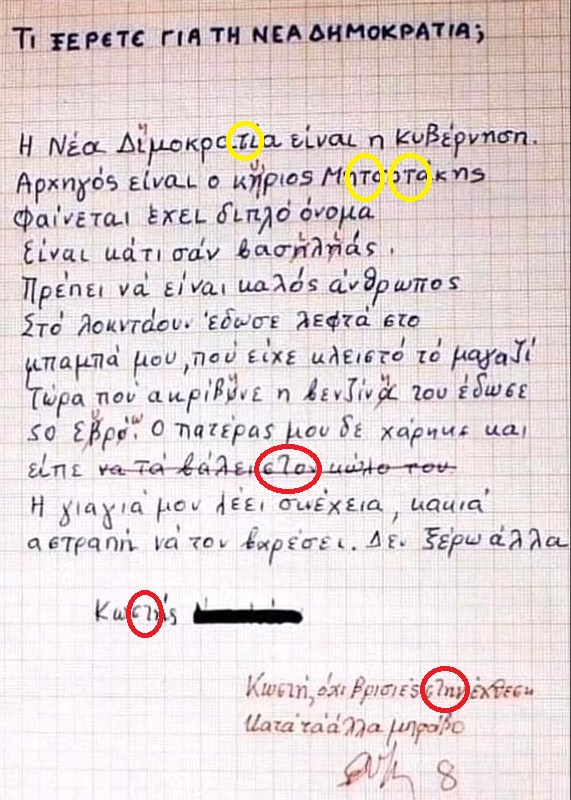 ΤΙ ΞΕΡΕΤΕ ΓΙΑ ΤΗ ΝΕΑ ΔΗΜΟΚΡΑΤΙΑ;
Η Νέα Δίμοκρατία είναι η Κυβέρνηση.
Αρχηγός είναι ο κήριος Μητσοτάκης
Φαίνεται έχει διπλό όνομα
Είναι κάτι σάν βασηληάς.
Πρέπει νά είναι καλός άνθρωπος
Στό λοκντάουν έδωσε λεφτά στο
μπαμπά μου, πού είχε κλειστό τό μαγαζί
Τώρα πού ακρίβυνε η βενζίνα του έδωσε
50 εβρό. Ο πατέρας μου δε χάρηκε και
είπε να τά βάλει στον κώλο του
Η γιαγιά μου λέει συνέχεια, κακιά
αστραπή νά τον βαρέσει. Δεν ξέρω άλλα
Κωστής
Κωστή, όχι βρισιές στην έχθεση
Κατά τα άλλα μπράβο
8